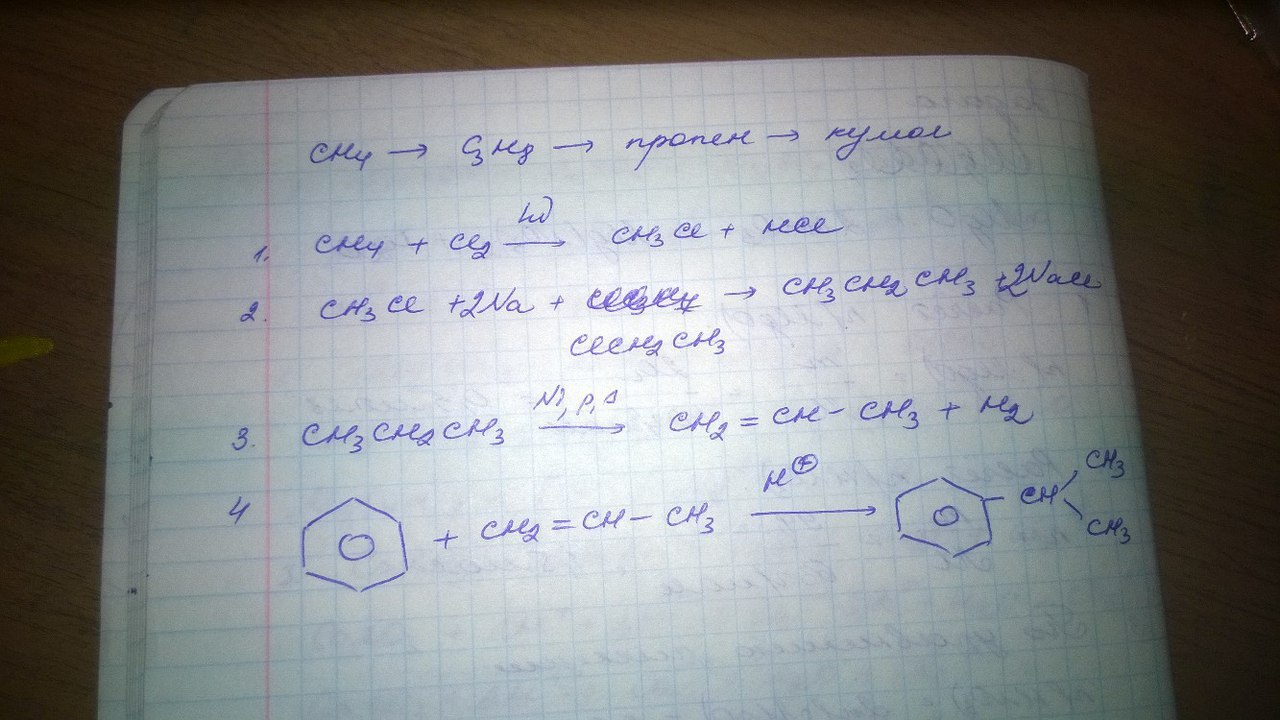 CH₄ → C₃H₈ → пропен → кумол
1. CH₄ + Cl₂ hν → CH₃Cl + HCl
2. CH₃Cl + 2Na + → CH₃CH₂CH₃ + 2NaCl
ClCH₂CH₃
3. CH₃CH₂CH₃ Ni, p, t → CH₂=CH-CH₃ + H₂
4 + CH₂=CH-CH₃ H⊕ → CH CH₃ CH₃